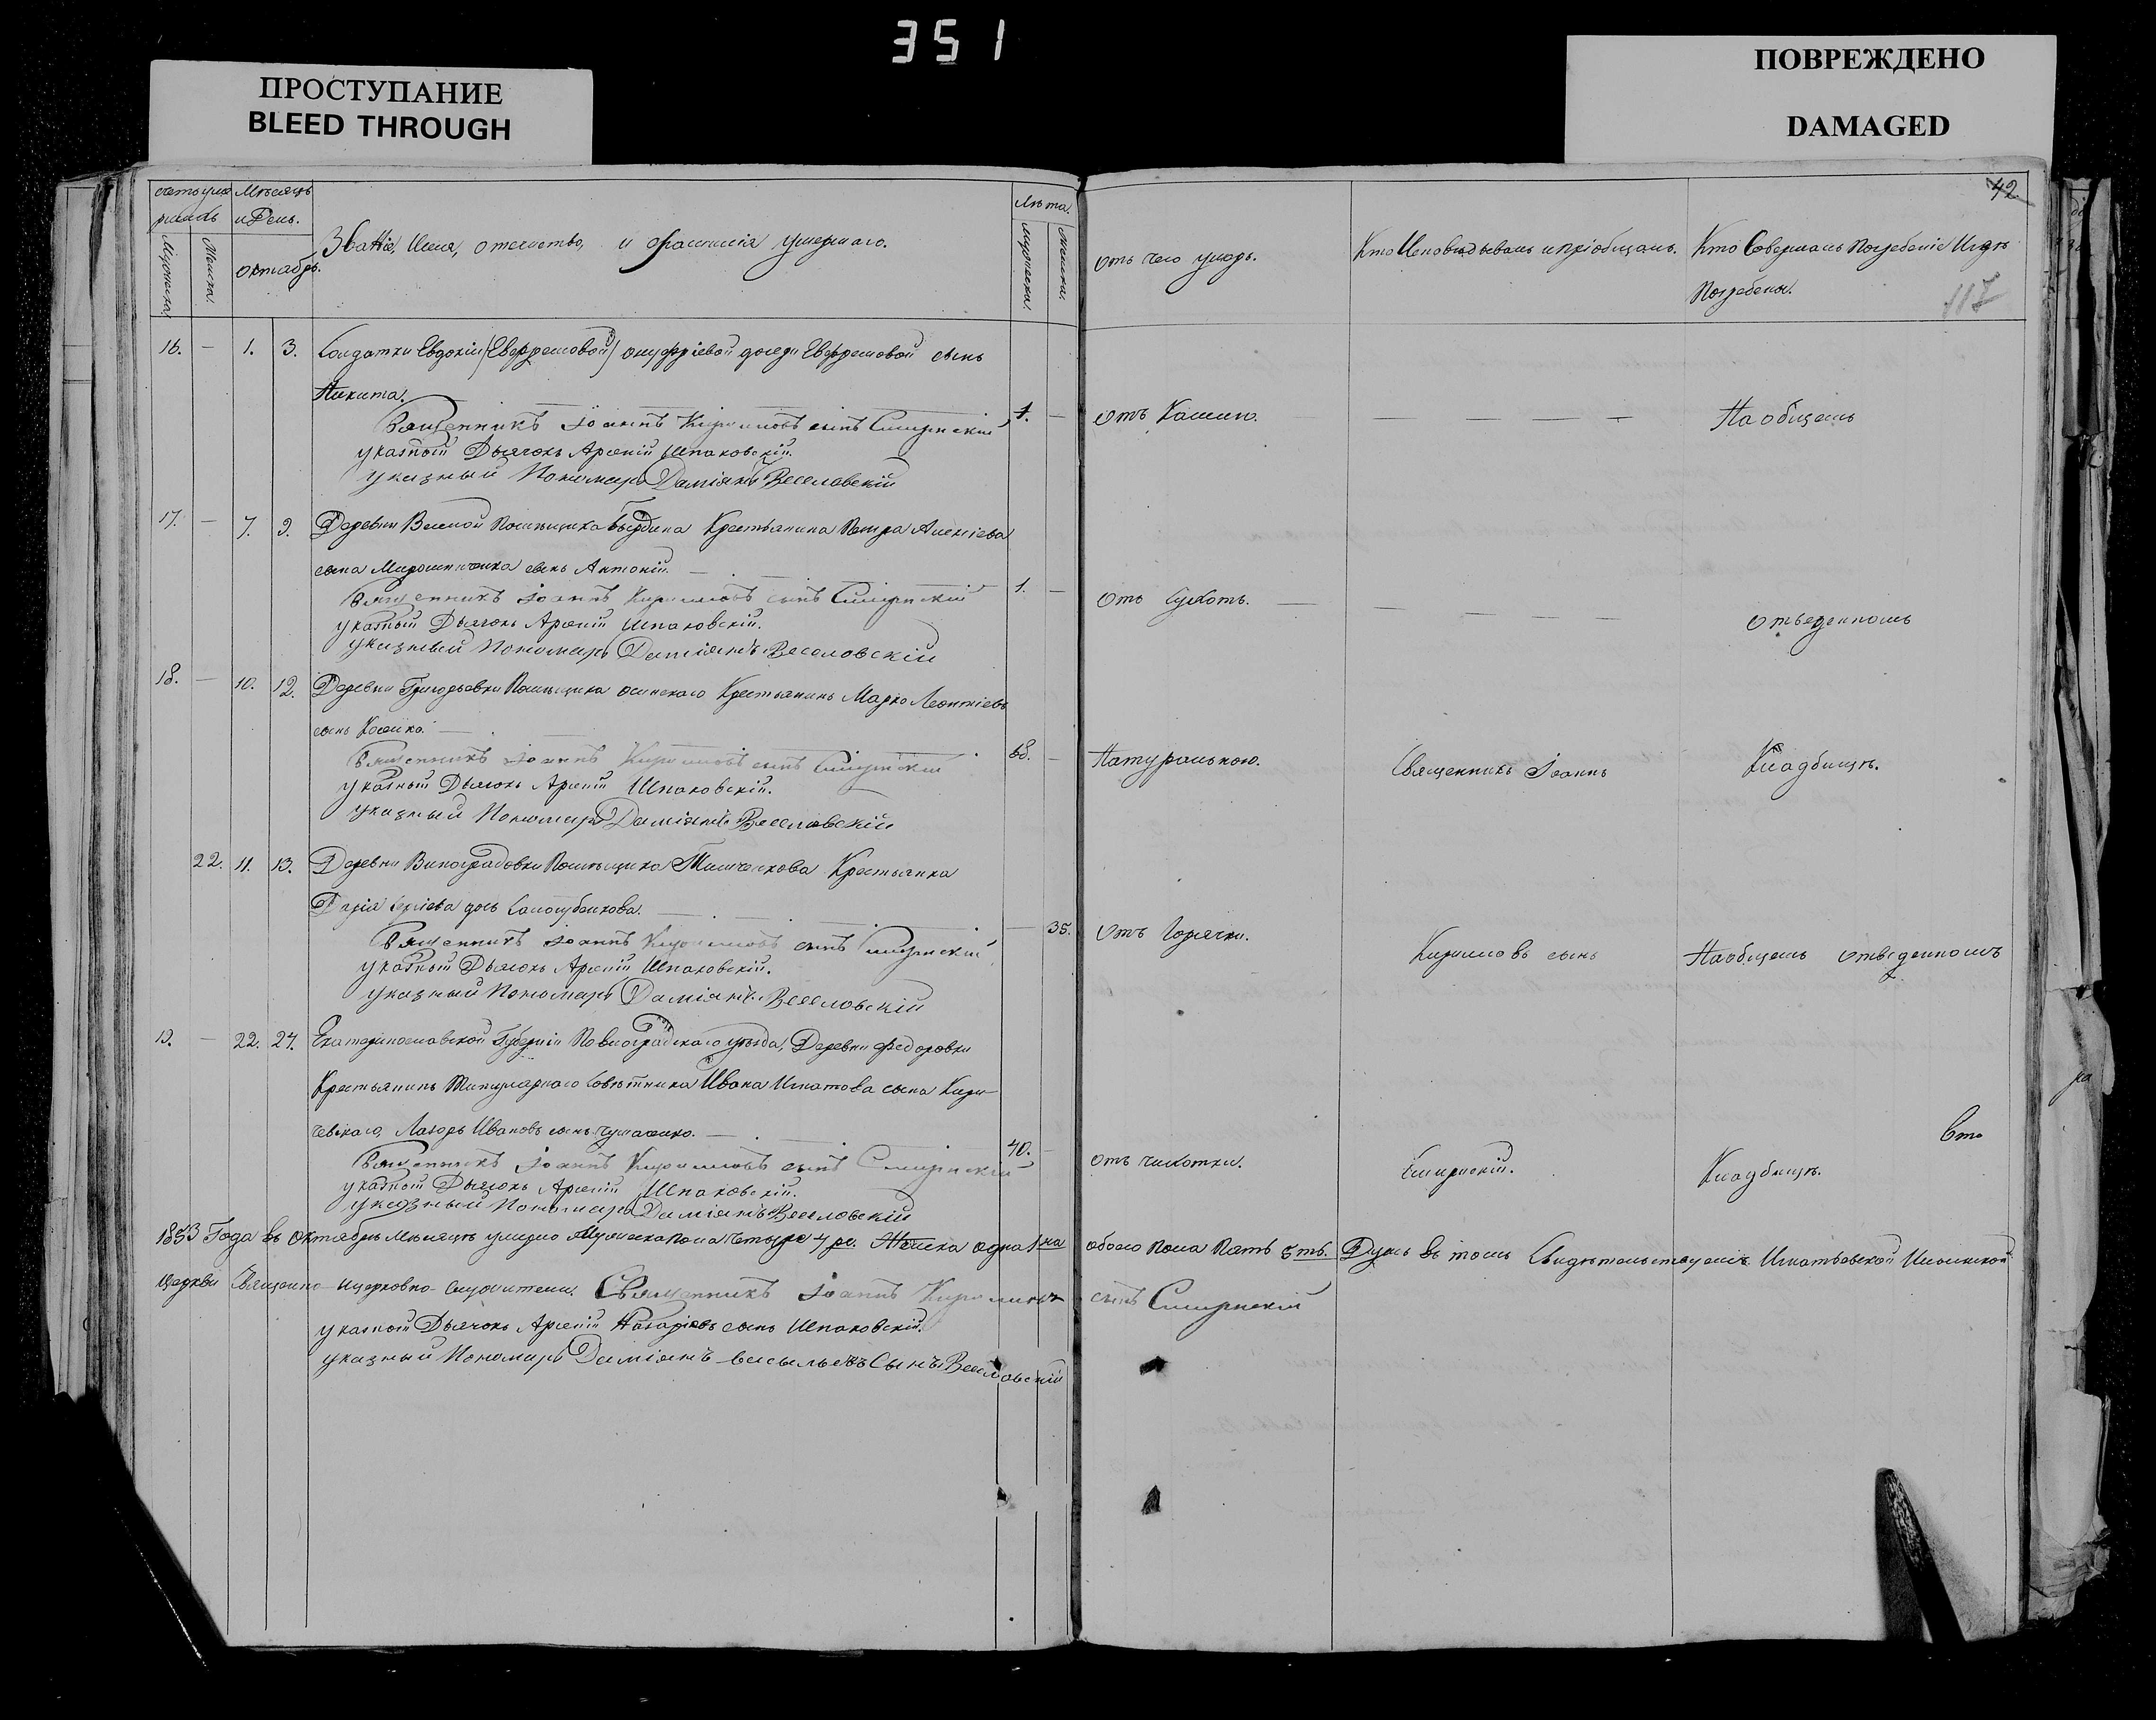 351
ПРОСТУПАНИЕ
BLEED THROUGH
ПОВРЕЖДЕНО
DAMAGED
42
117
Мѣсяцъ
и День.
Октябрь.
Званіе, Имя, отечество, и фамилія умершаго.
Лѣта.
отъ чего умеръ.
Кто Исповѣдывалъ и пріобщалъ.
Кто Совершалъ Погребеніе И гдѣ
Погребены.
16. — 1. 3. Солдатки Евдокіи (Евфремовой) Онуфріевой дочери Евфремовой сынъ
Никита.
1. — отъ Кашлю. — — — — На общемъ
Священникъ Іоаннъ Кирилловъ сынъ Смирнскій
указный Дьячокъ Арсеній Шпаковскій.
указный Пономарь Даміянъ Веселовскій
17. — 7. 9. Деревни Помѣщика Крестьянина Петра Алексіева
сына Мирошниченка сынъ Антоній.
1. — отъ Сухотъ. — — — — отведенномъ
Священникъ Іоаннъ Кирилловъ сынъ Смирнскій
указный Дьячокъ Арсеній Шпаковскій.
указный Пономарь Даміянъ Веселовскій
18. — 10. 12. Деревни Григорьевки Помѣщика Осинскаго Крестьянинъ Марко Леонтіевъ
сынъ
68. — Натуральною. Священникъ Іоаннъ Кладбищѣ.
Священникъ Іоаннъ Кирилловъ сынъ Смирнскій
указный Дьячокъ Арсеній Шпаковскій.
указный Пономарь Даміянъ Веселовскій
22. 11. 13. Деревни Виноградовки Помѣщика Тимченкова Крестьянка
Дарія Сергіева дочь
— 35. отъ Горячки. Кирилловъ сынъ На общемъ отведенномъ
Священникъ Іоаннъ Кирилловъ сынъ Смирнскій
указный Дьячокъ Арсеній Шпаковскій.
указный Пономарь Даміянъ Веселовскій
19. — 22. 24. Екатеринославской Губерніи уѣзда, Деревни Федоровки
Крестьянинъ Титулярнаго Совѣтника Ивана Игнатова сына
Лазорь Ивановъ сынъ
40. — отъ чихотки. Смирнскій. Кладбищѣ.
Священникъ Іоаннъ Кирилловъ сынъ Смирнскій
указный Дьячокъ Арсеній Шпаковскій.
указный Пономарь Даміянъ Веселовскій
1853 Года въ Октябрѣ Мѣсяцѣ умерло Мужеска пола Четыре 4 ре. Женска одна 1 на обоего пола Пять 5 ть. Душъ въ томъ Свидѣтельствуемъ Игнатьевской Ильинской
Церкви Священно и церковно служители. Священникъ Іоаннъ Кирилловъ сынъ Смирнскій
указный Дьячокъ Арсеній Назаріевъ сынъ Шпаковскій.
указный Пономарь Даміянъ Васильевъ Сынъ Веселовскій